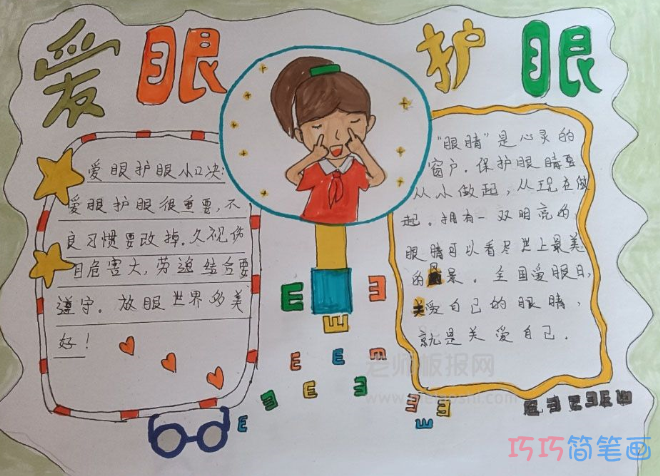 爱眼 护眼
爱眼护眼小口决:
爱眼护眼很重要,不
良习惯要改掉.久视伤
目危害大,劳逸结合要
遵守.放眼世界多美
好!
"眼睛"是心灵的
窗户.保护眼睛要
从小做起,从现在做
起.拥有一双明亮的
眼睛可以看尽世上最美
的 景.全国爱眼日,
关爱自己的眼睛,
就是关爱自己.
老师板报网
巧巧简笔画